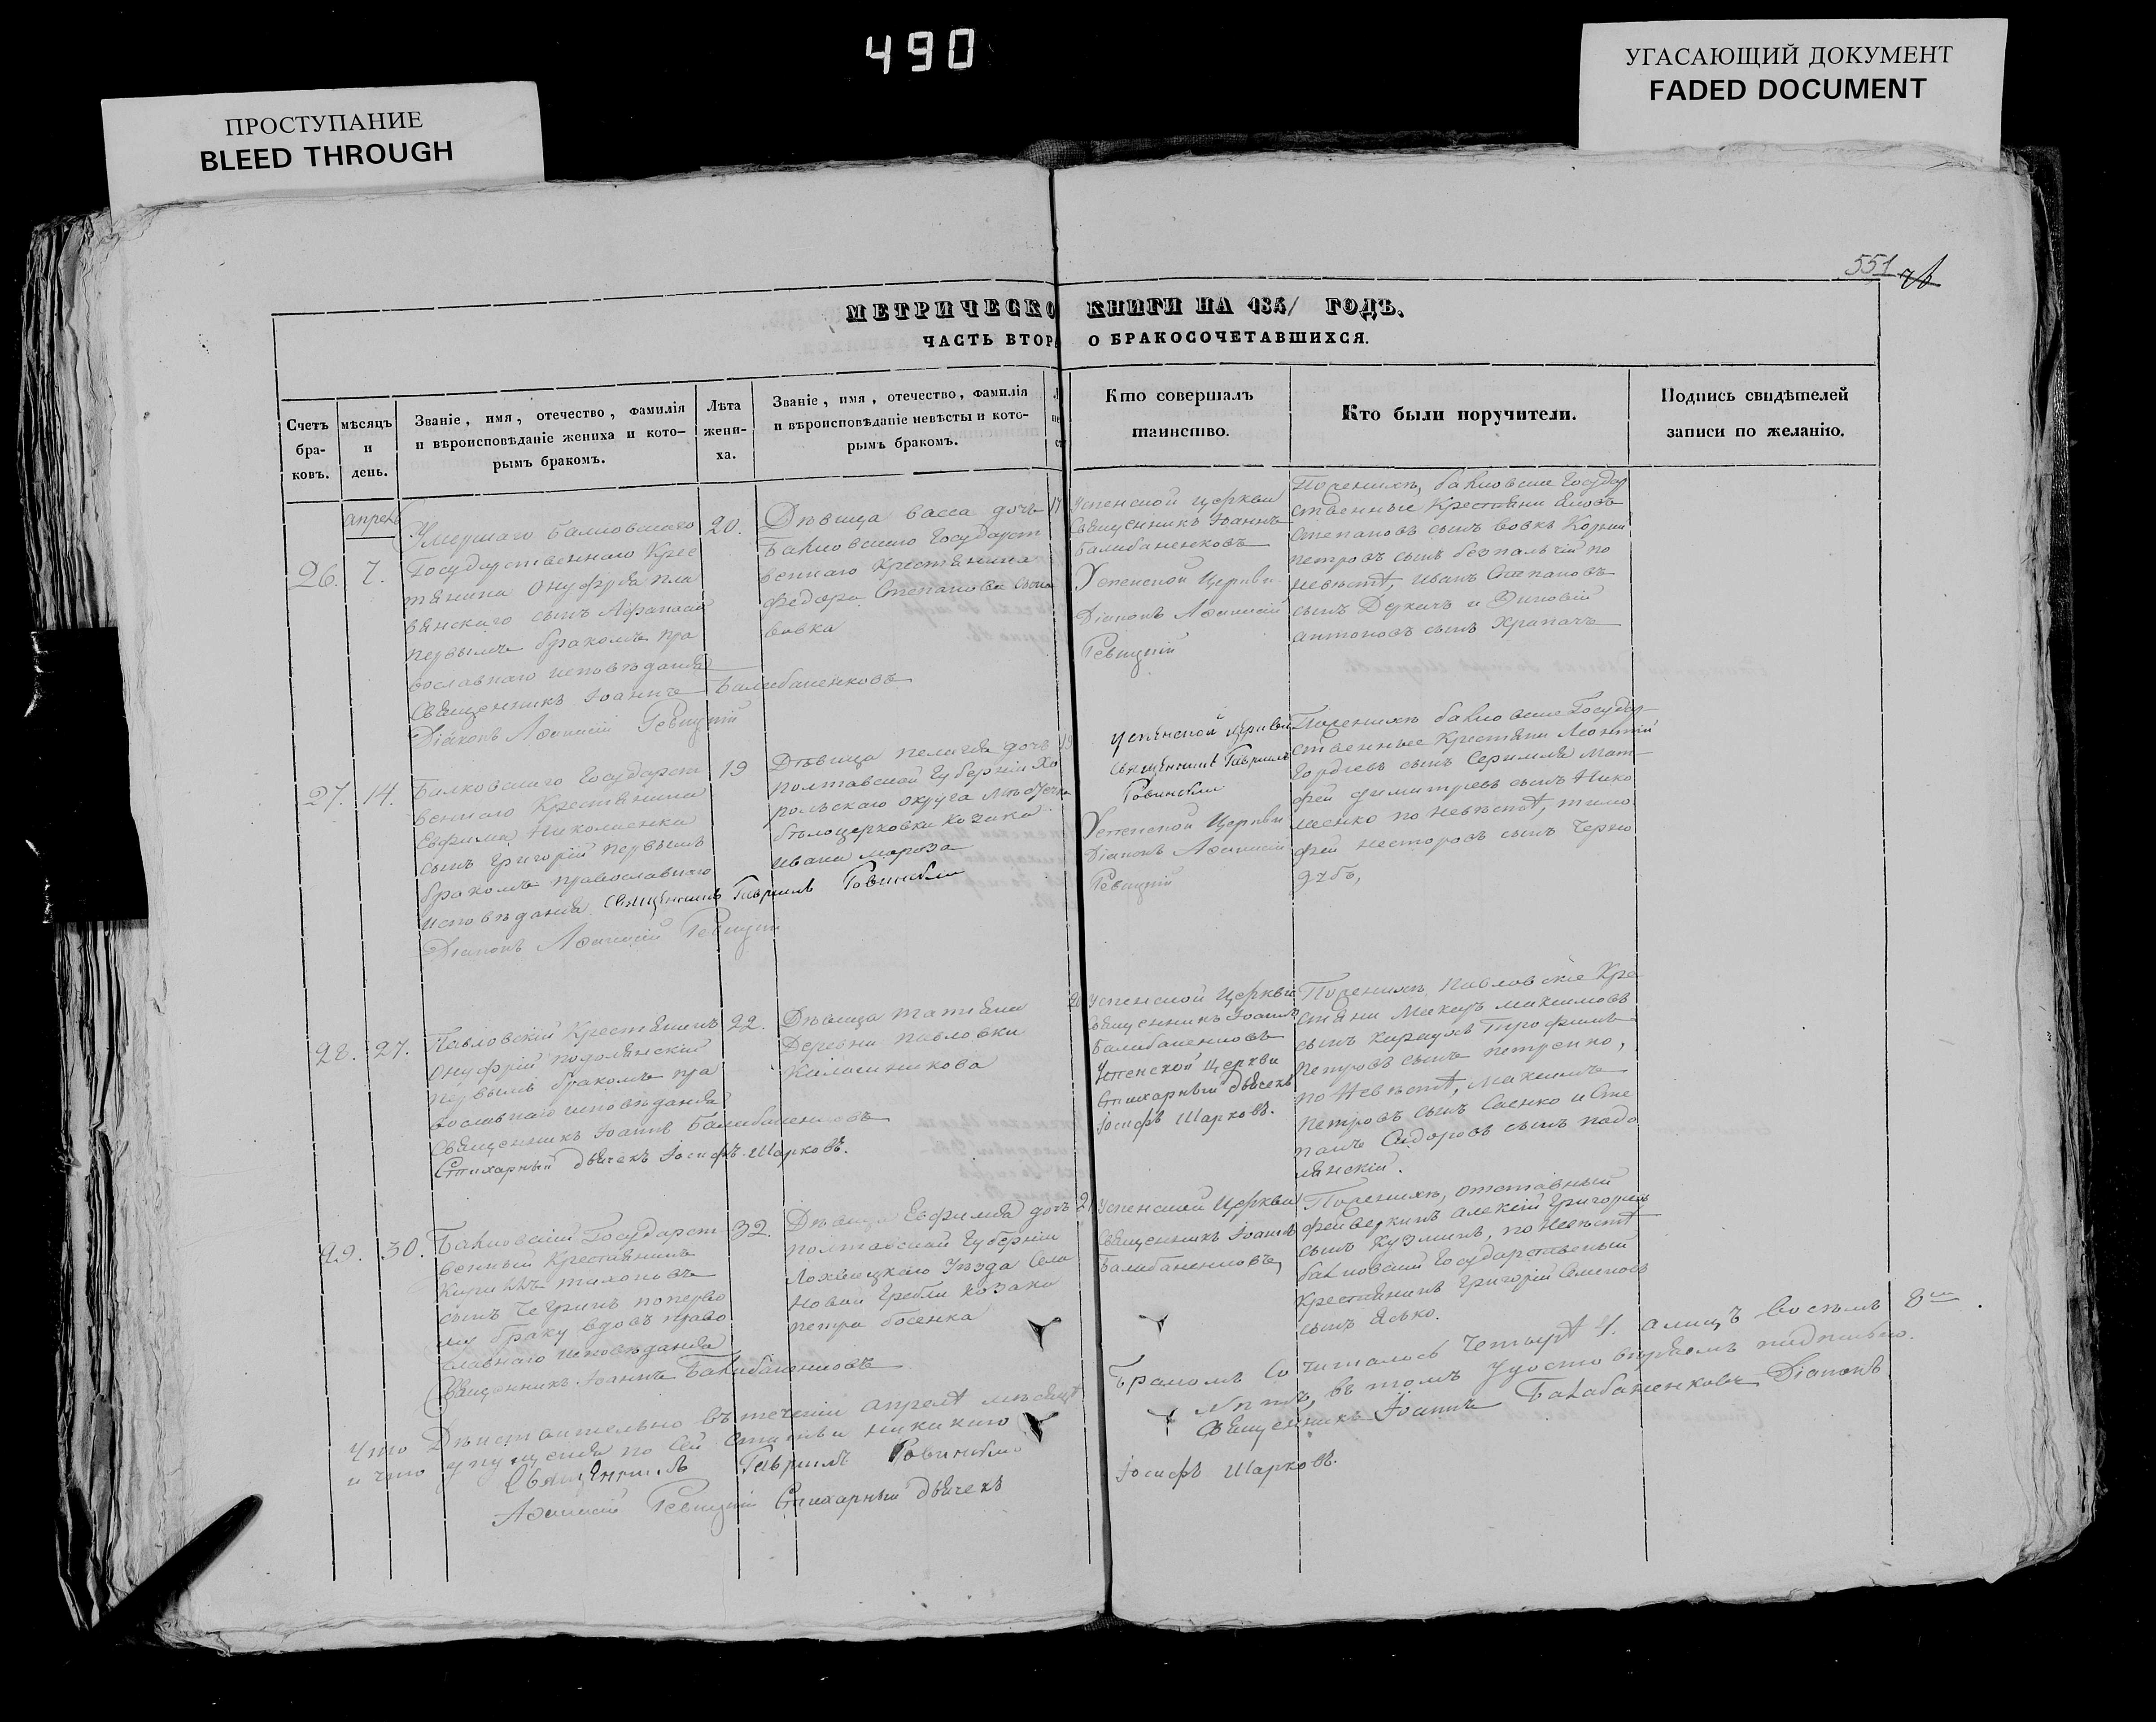 490
ПРОСТУПАНИЕ
BLEED THROUGH
УГАСАЮЩИЙ ДОКУМЕНТ
FADED DOCUMENT
551
МЕТРИЧЕСКО КНИГИ НА 1851 ГОДЪ.
ЧАСТЬ ВТОРА О БРАКОСОЧЕТАВШИХСЯ.
Счетъ
бра-
ковъ.
мѣсяцъ
и
день.
Званіе, имя, отечество, фамилія
и вѣроисповѣданіе жениха и кото-
рымъ бракомъ.
Лѣта
жени-
ха.
Званіе, имя, отечество, фамилія
и вѣроисповѣданіе невѣсты и кото-
рымъ бракомъ.
Кто совершалъ
таинство.
Кто были поручители.
Подпись свидѣтелей
записи по желанію.
апрель
26.
7.
Умершаго Балковскаго
Государственнаго Крес
тянина Онуфрія
сынъ Афанасій
первымъ бракомъ пра
вославнаго исповѣданія
Священникъ Іоаннъ Балабаненковъ
Діаконъ Афанасій Ревицкій
20.
Дѣвица Васса дочь
Балковскаго Государст
веннаго Крестянина
Федора Степанова сына
Вовка
17
Успенской Церкви
Священникъ Іоаннъ
Балабаненковъ
Успенской Церкви
Діаконъ Афанасій
Ревицкій
По женихѣ, балковские Государ
ственные Крестяни Яковъ
Степановъ сынъ Вовкъ Корний
Петровъ сынъ безпальчій по
невѣстѣ, Иванъ Степановъ
сынъ Деркачъ и Зиновій
антоновъ сынъ Храпачъ
27.
14.
Балковскаго Государст
веннаго Крестянина
Евфима Николаенка
сынъ Григорій первымъ
бракомъ православнаго
исповѣданія. Священникъ Гавриилъ Ровинскій
Діаконъ Афанасій Ревицкій
19
Дѣвица Пелагія дочь
Полтавской Губерніи Хо
рольскаго округа Мѣстечка
бѣлоцерковки Козака
Ивана Мороза
19
Успенской Церкви
Священникъ Гавриилъ
Ровинскій
Успенской Церкви
Діаконъ Афанасій
Ревицкій
По женихѣ балковские Государ
ственные Крестяни Леонтій
Гордѣевъ сынъ Мат
фей Димитріевъ сынъ Нико
лаенко по невѣстѣ, Тимо
фей Несторовъ сынъ Черно
зубъ,
28.
27.
Павловскій Крестянинъ
Онуфрій Подолянскій
первымъ бракомъ пра
вославнаго исповѣданія
Священникъ Іоаннъ Балабаненковъ
Стихарный дьячекъ Іосифъ Шарковъ.
22.
Дѣвица Татіяна
Деревни Павловки
20
Успенской Церкви
Священникъ Іоаннъ
Балабаненковъ
Успенской Церкви
Стихарный дьячекъ
Іосифъ Шарковъ.
По женихѣ Павловские Кре
стяни Макаръ Максимовъ
сынъ Трофимъ
Петровъ сынъ Петренко,
по невѣстѣ, Максимъ
Петровъ сынъ Саенко и Сте
панъ Сидоровъ сынъ Подо
лянскій.
29.
30.
Балковскій Государст
венный Крестянинъ
сынъ Чегринъ по перво
му браку вдовъ право
славнаго исповѣданія
Священникъ Іоаннъ Балабаненковъ
32.
Дѣвица Евфимія дочь
Полтавской Губерніи
Лохвицкаго Уезда Села
Новой Гребли Козака
Петра босенка
21
Успенской Церкви
Священникъ Іоаннъ
Балабаненковъ
По женихѣ, отставный
фейверкинъ алексѣй Григорьевъ
сынъ Кузминъ, по невѣстѣ
балковский Государственый
Крестянинъ Григорій Семеновъ
сынъ Ясько.
Что Дѣйстаительно въ теченіи апрелѣ мѣсяцѣ Бракомъ Сочиталось Четырѣ 4. а лицъ восемъ 8ми.
и что упущения по сей статьи никакого въ томъ удостовѣряемъ подписью.
Священникъ Гавриилъ Ровинскій Священникъ Іоаннъ Балабаненковъ Діаконъ
Афанасій Ревицкій Стихарный дьячекъ Іосифъ Шарковъ.